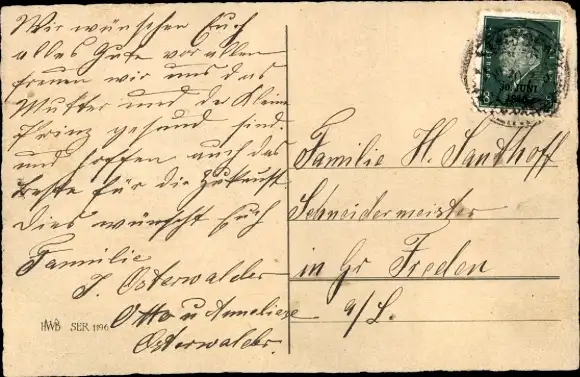 Wir wünschen Euch
alles Gute vor allem
freuen wir uns das
Mutter und der kleine
Prinz gesund sind.
und hoffen auch das
beste für die Zukunft
Dies wünscht Euch
Familie
J. Osterwalder
Otto u Anneliese
Osterwalder.
HWB SER 1196
30. JUNI
1930
Familie H. Sandhoff
Schneidermeister
in Gr Freden
a/L.